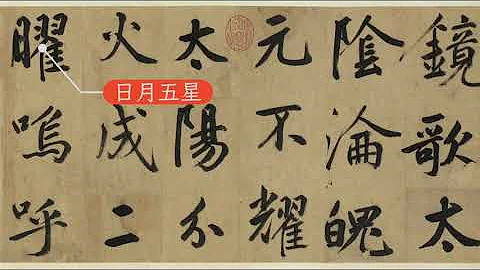 鏡歌太
陰淪魄
元不耀
太陽分
火成二
曜嗚呼
日月五星